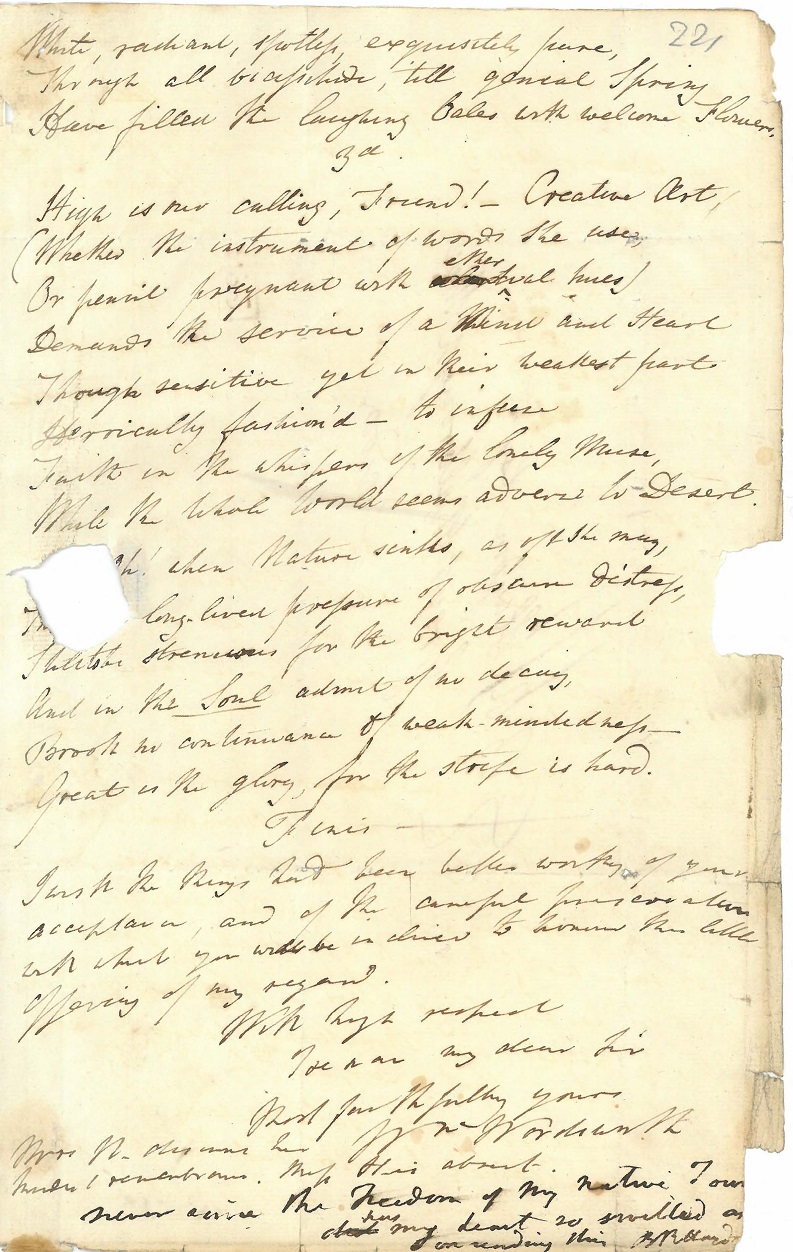 221
White, radiant, spotless, exquisitely pure,
Through all vicissitude, till genial Spring
Have filled the laughing Vales with welcome Flowers.
3d.
High is our calling, Friend!— Creative Art,
(Whether the instrument of words she use,
ether
Or pencil pregnant with eal hues)
Demands the service of a Mind and Heart
Though sensitive yet in their weakest part
Heroically fashion'd — to infuse
Faith in the whispers of the lonely Muse,
While the whole World seems adverse to Desert.
h! when Nature sinks, as oft she may,
Th long-lived pressure of obscure distress,
Still to be strenuous for the bright reward
And in the Soul admit of no decay,
Brook no continuance of weak-mindedness—
Great is the glory, for the strife is hard.
Finis —
I wish the things had been better worthy of your
acceptance, and of the careful preservation
with which you will be inclined to honour this little
offering of my regard.
With high respect
I remain my dear Sir
Most faithfully yours
Wm Wordsworth
Mrs W. desires her
kindest remembrances. Miss H is absent.
never since the freedom of my native Town
has
my heart so swelled as
on reading this BRHaydon